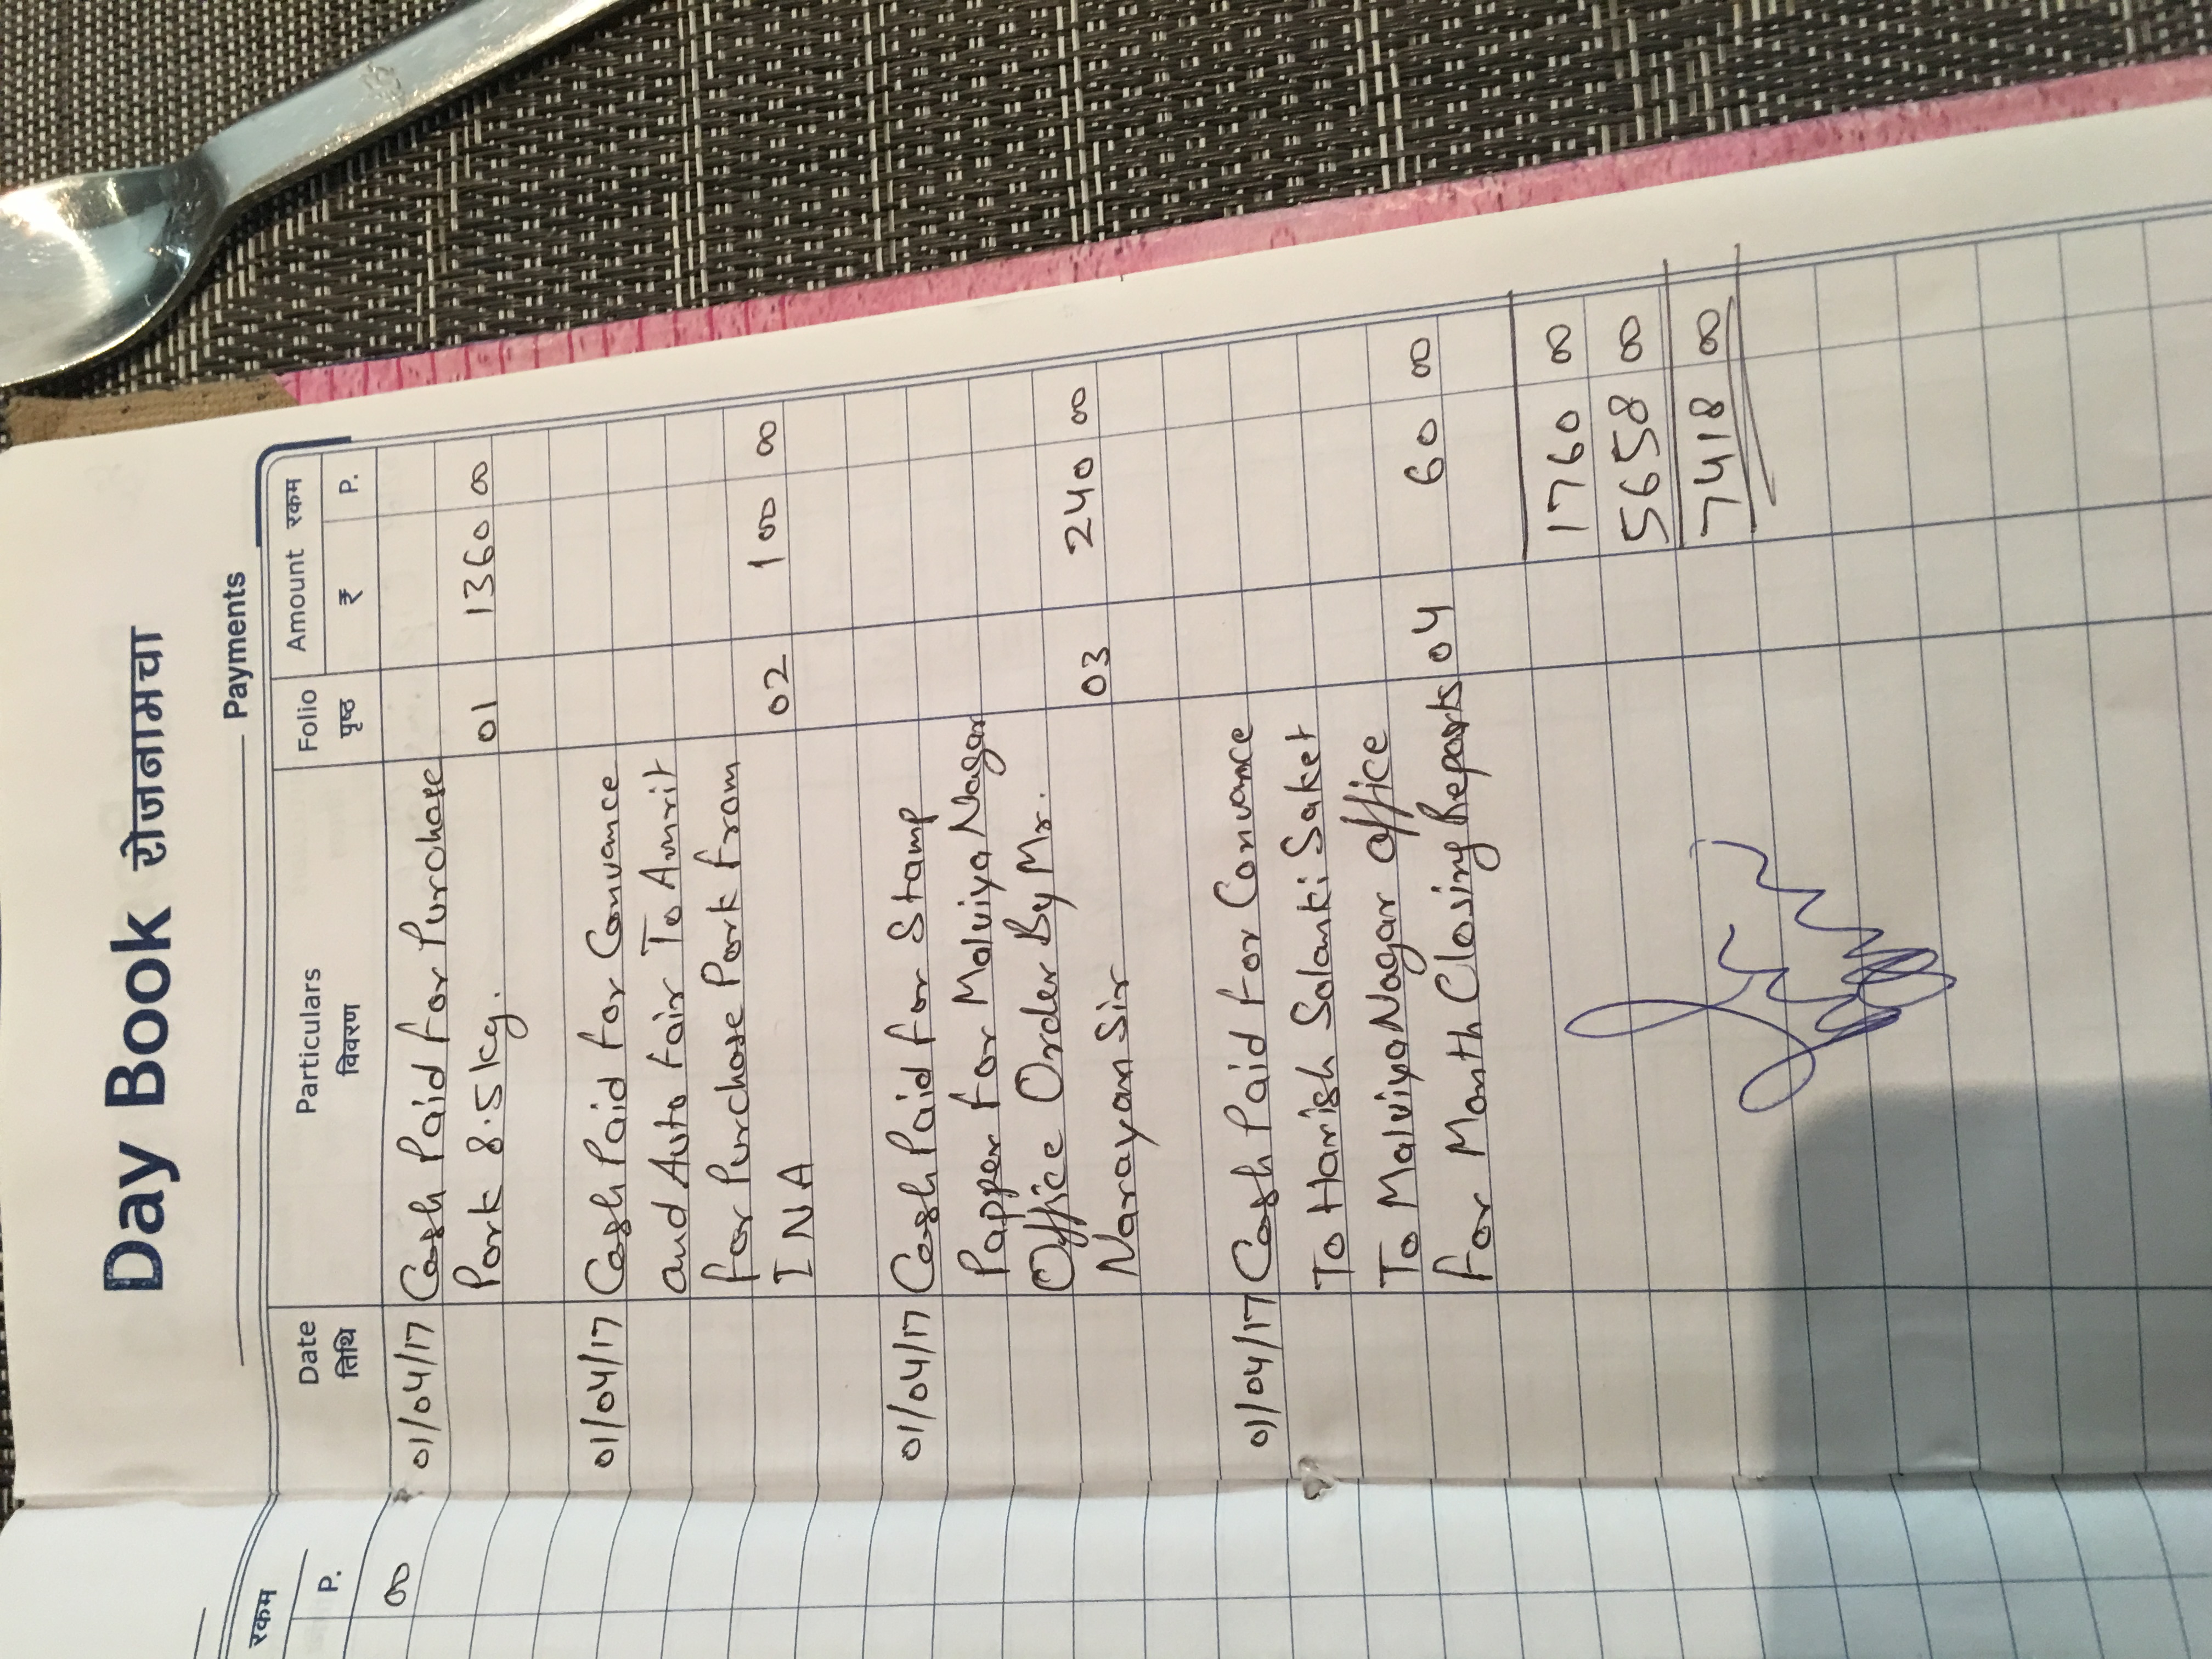 रकम
P.
00
Day Book रोजनामचा
Payments
Date Particulars Folio Amount रकम
तिथि विवरण पृष्ठ ₹ P.
01/04/17 Cash Paid for Purchase
Pork 8.5kg. 01 1360 00
01/04/17 Cash Paid for Convance
and Auto fair To Amrit
for Purchase Pork from
INA 02 100 00
01/04/17 Cash Paid for Stamp
Papper for Malviya Nagar
Office Order By Mr.
Narayan Sir 03 240 00
01/04/17 Cash Paid for Convance
To Harish Solanki Saket
To Malviya Nagar office
for Month Closing Reports 04 60 00
1760 00
5658 00
7418 00